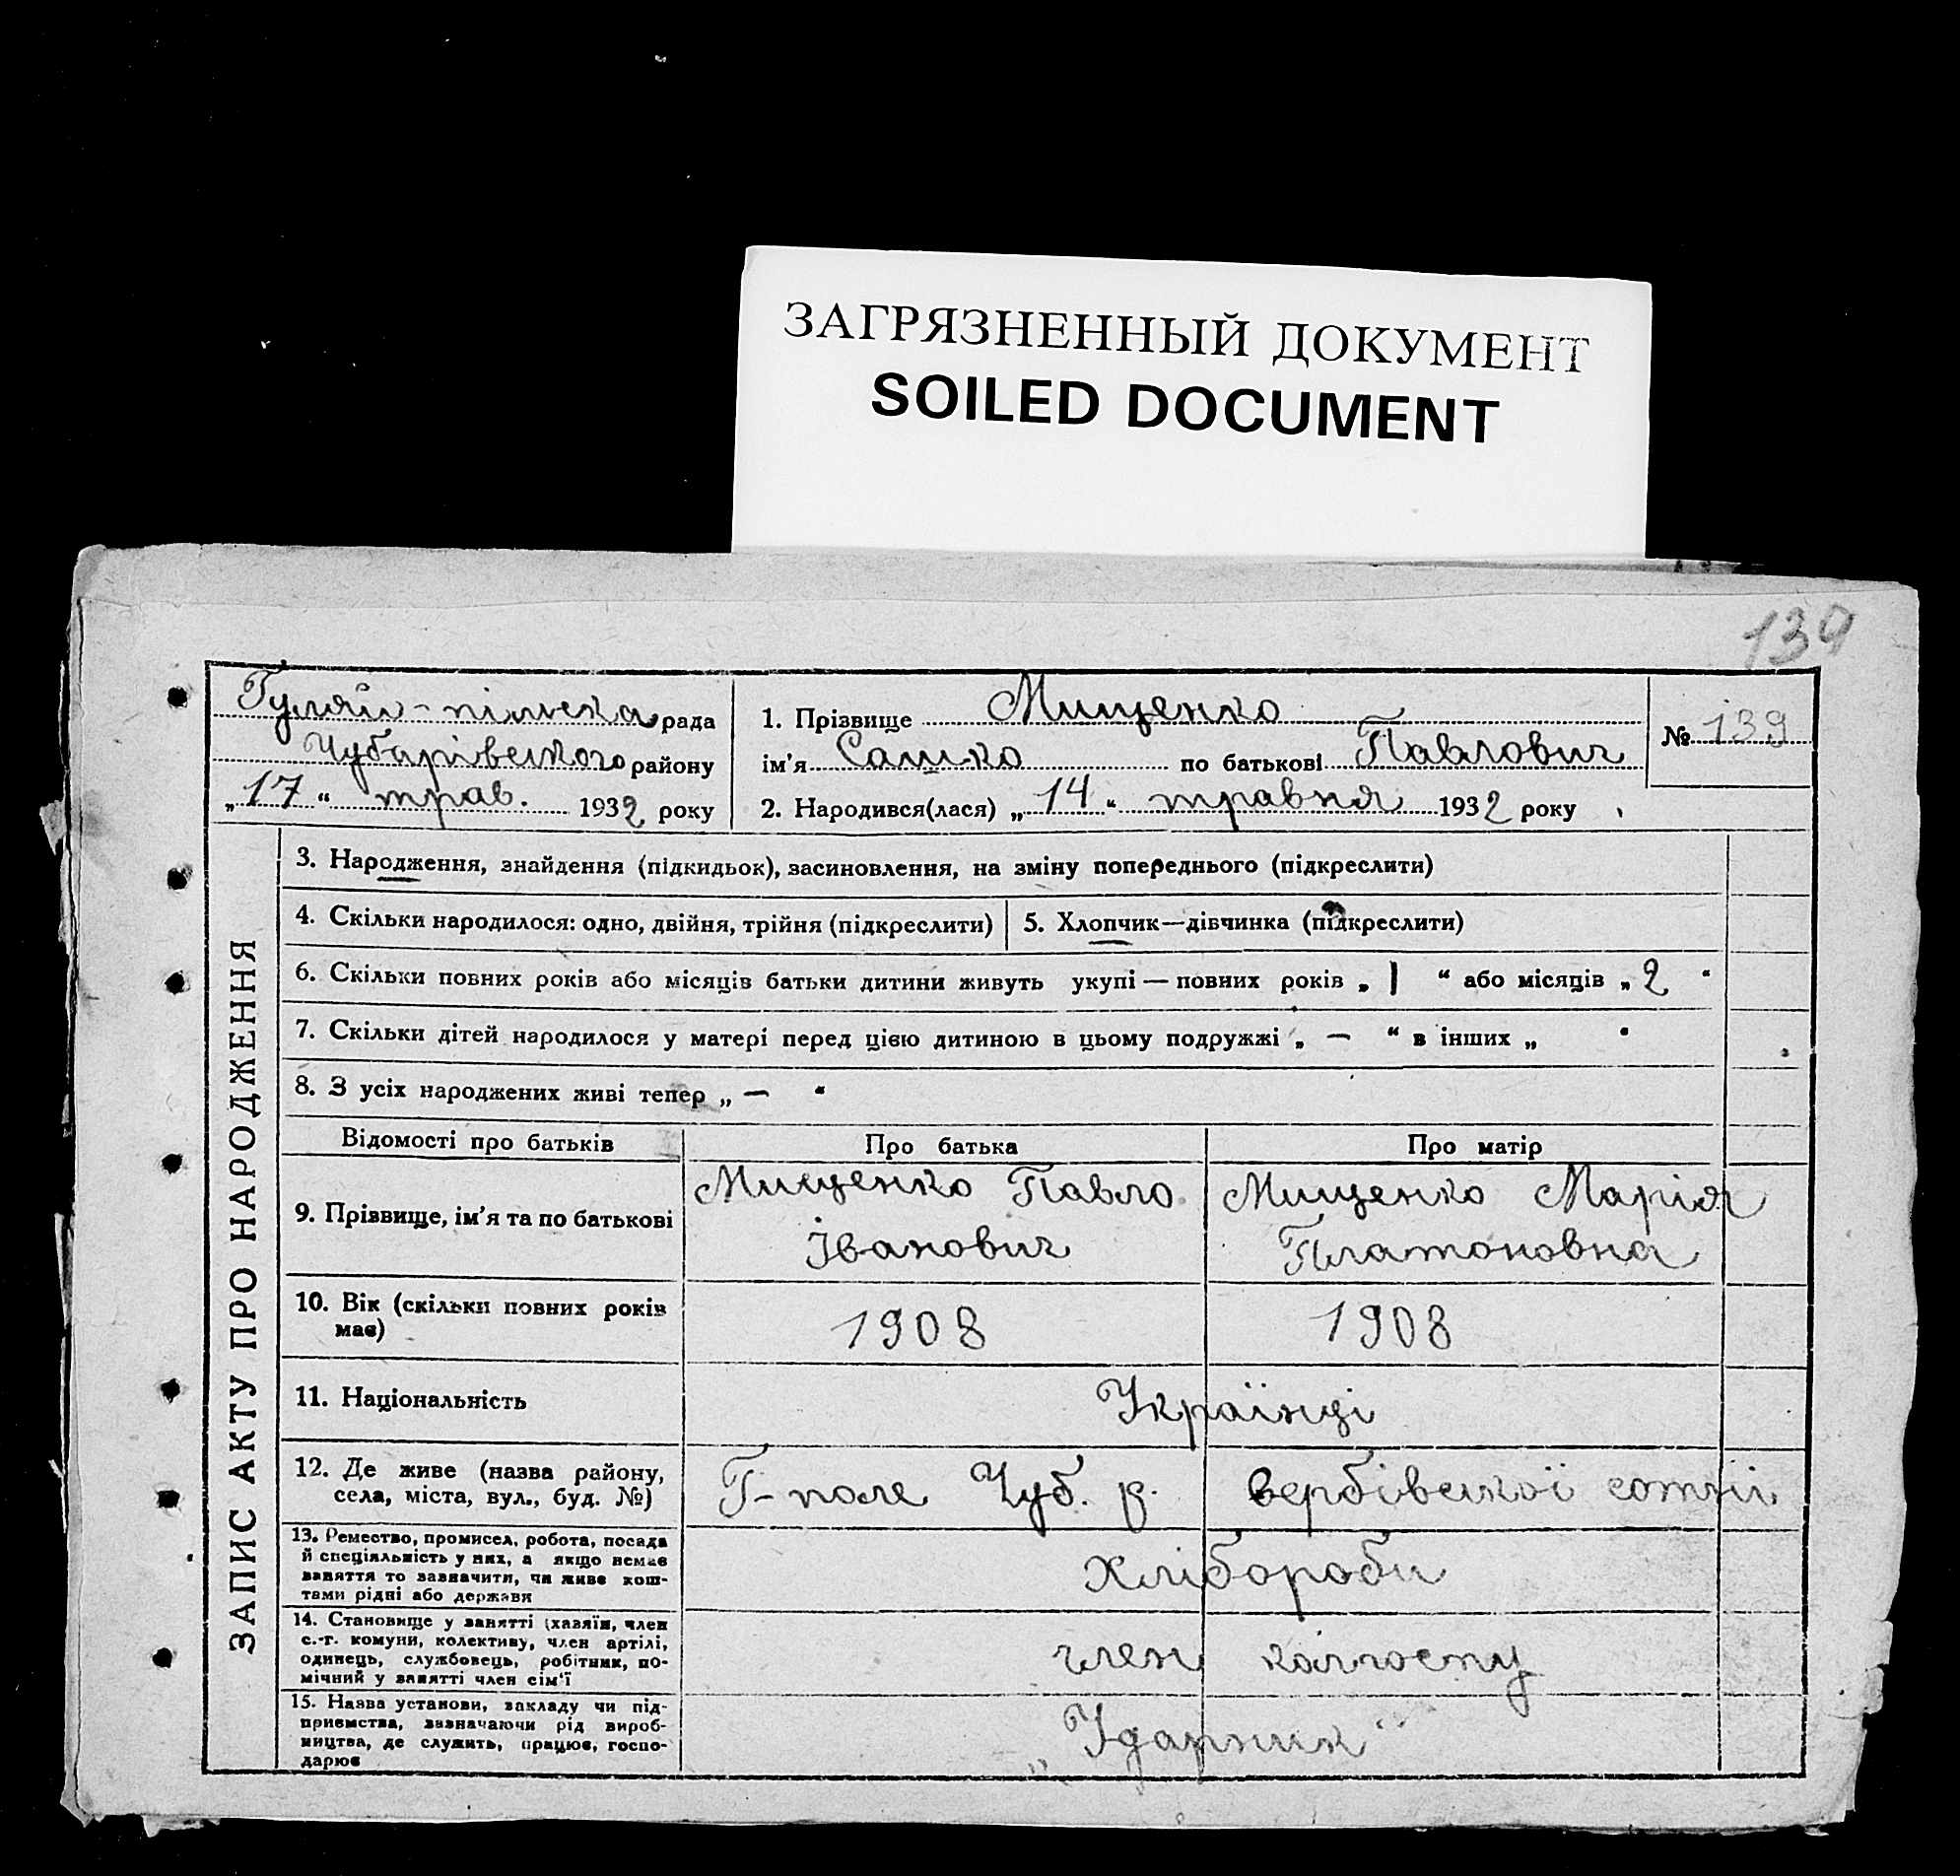 ЗАГРЯЗНЕННЫЙ ДОКУМЕНТ
SOILED DOCUMENT
139
Гуляй-пільска рада
Чубарівського району
„17“ трав. 1932 року
1. Прізвище Мищенко
ім'я Сашко по батькові Павлович
2. Народився(лася) „14“ травня 1932 року
№ 139
ЗАПИС АКТУ ПРО НАРОДЖЕННЯ
3. Народження, знайдення (підкидьок), засиновлення, на зміну попереднього (підкреслити)
4. Скільки народилося: одно, двійня, трійня (підкреслити) 5. Хлопчик—дівчинка (підкреслити)
6. Скільки повних років або місяців батьки дитини живуть укупі — повних років „1“ або місяців „2“
7. Скільки дітей народилося у матері перед цією дитиною в цьому подружжі „—“ в інших „ “
8. З усіх народжених живі тепер „—“
Відомості про батьків Про батька Про матір
9. Прізвище, ім'я та по батькові
Мищенко Павло
Іванович
Мищенко Марія
Платоновна
10. Вік (скільки повних років
має)
1908 1908
11. Національність
Українці
12. Де живе (назва району,
села, міста, вул., буд. №)
Г-поле Чуб. р. Вербівської сотні
13. Ремество, промисел, робота, посада
й спеціяльність у них, а якщо немає
заняття то зазначити, чи живе кош-
тами рідні або держави
Хлібороби
14. Становище у занятті (хазяїн, член
с.-г. комуни, колективу, член артілі,
одинець, службовець, робітник, по-
мічний у занятті член сім'ї
член колгоспу
15. Назва установи, закладу чи під-
приємства, зазначаючи рід вироб-
ництва, де служить, працює, госпо-
дарює
„Ударник“